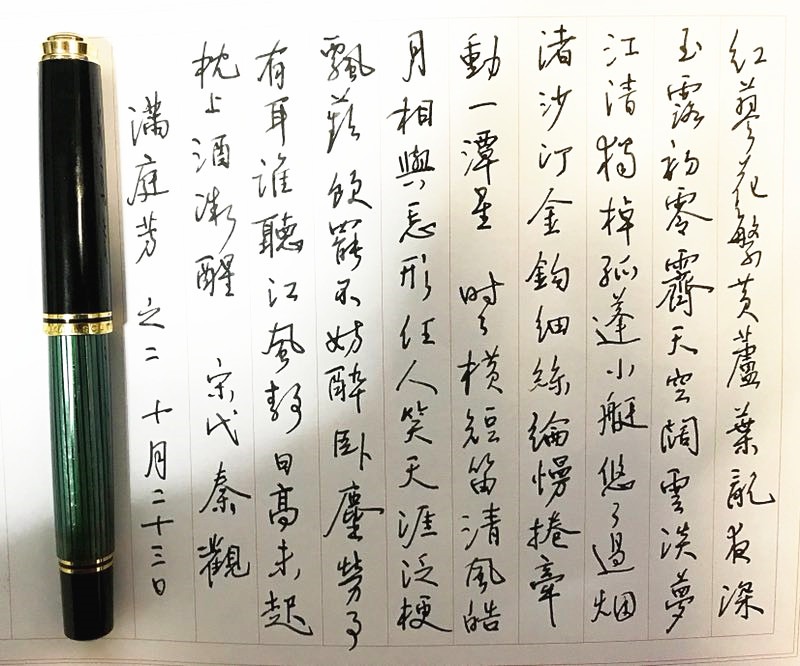 紅蓼花繁黃蘆葉亂夜深
玉露初零霽天空闊雲淡夢
江清獨棹孤蓬小艇悠々過烟
渚沙汀金鉤細絲綸慢捲牽
動一潭星 時々橫短笛清風皓
月相與忘形任人笑天涯泛梗
飄萍飲罷不妨醉臥塵勞事
有耳誰聽江風靜日高未起
枕上酒微醒 宋代秦觀
滿庭芳 之二 十月二十三日